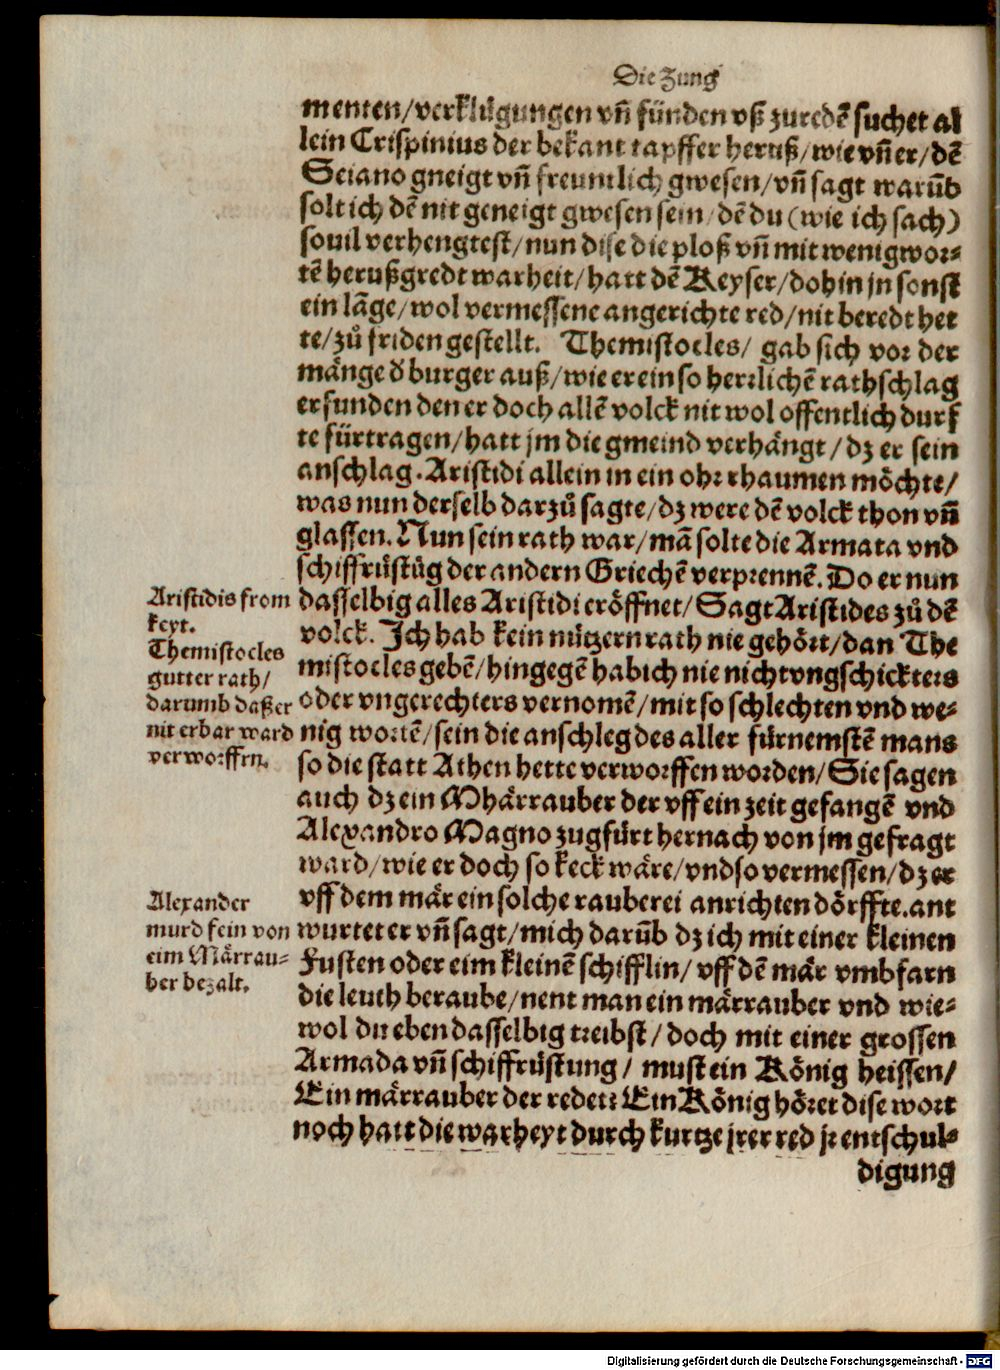 Die Zung
menten/verklůgungen vñ fünden vß zuredẽ suchet al
lein Crispinius der bekant tapffer heruß/wie vñ er/dẽ
Seiano gneigt vñ freuntlich gwesen/vñ sagt warũb
solt ich dẽ nit geneigt gwesen sein/dẽ du (wie ich sach)
souil verhengtest/nun dise die ploß vñ mit wenig wor⸗
tẽ herußgredt warheit/hatt dẽ Keyser/dohin jn sonst
ein lãge/wol vermessene angerichte red/nit beredt het
te/zů friden gestellt. Themistocles/ gab sich vor der
mänge d̕ burger auß/wie er ein so herrlichẽ rathschlag
erfunden den er doch allẽ volck nit wol offentlich durf
te fürtragen/hatt jm die gmeind verhängt/dz er sein
anschlag. Aristidi allein in ein ohr rhaumen möchte/
was nun derselb darzů sagte/dz were dẽ volck thon vñ
glassen. Nun sein rath war/mã solte die Armata vnd
schiffrüstũg der andern Griechẽ verprennẽ. Do er nun
dasselbig alles Aristidi eröffnet/Sagt Aristides zů dẽ
volck. Ich hab kein nützern rath nie gehört/dan The
mistocles gebẽ/hingegẽ hab ich nie nicht vngschickters
oder vngerechters vernomẽ/mit so schlechten vnd we⸗
nig wortẽ/sein die anschleg des aller fürnemstẽ mans
so die statt Athen hette verworffen worden/Sie sagen
auch dz ein Mhärrauber der vff ein zeit gefangẽ vnd
Alexandro Magno zugfürt hernach von jm gefragt
ward/wie er doch so keck wäre/vnd so vermessen/dz er
vff dem mär ein solche rauberei anrichten dörffte. ant
wurtet er vñ sagt/mich darũb dz ich mit einer kleinen
Fusten oder eim kleinẽ schifflin/vff dẽ mär vmbfarn
die leuth beraube/nent man ein märrauber vnd wie⸗
wol du eben dasselbig treibst/doch mit einer grossen
Armada vñ schiffrüstung/ must ein König heissen/
Ein märrauber der redett Ein König höret dise wort
noch hatt die warheyt durch kurtze jrer red jr entschul⸗
digung
Aristidis from
keyt.
Themistocles
gutter rath/
darumb daß er
nit erbar ward
verworffen.
Alexander
murd fein von
eim Märrau⸗
ber bezalt.
Digitalisierung gefördert durch die Deutsche Forschungsgemeinschaft - DFG